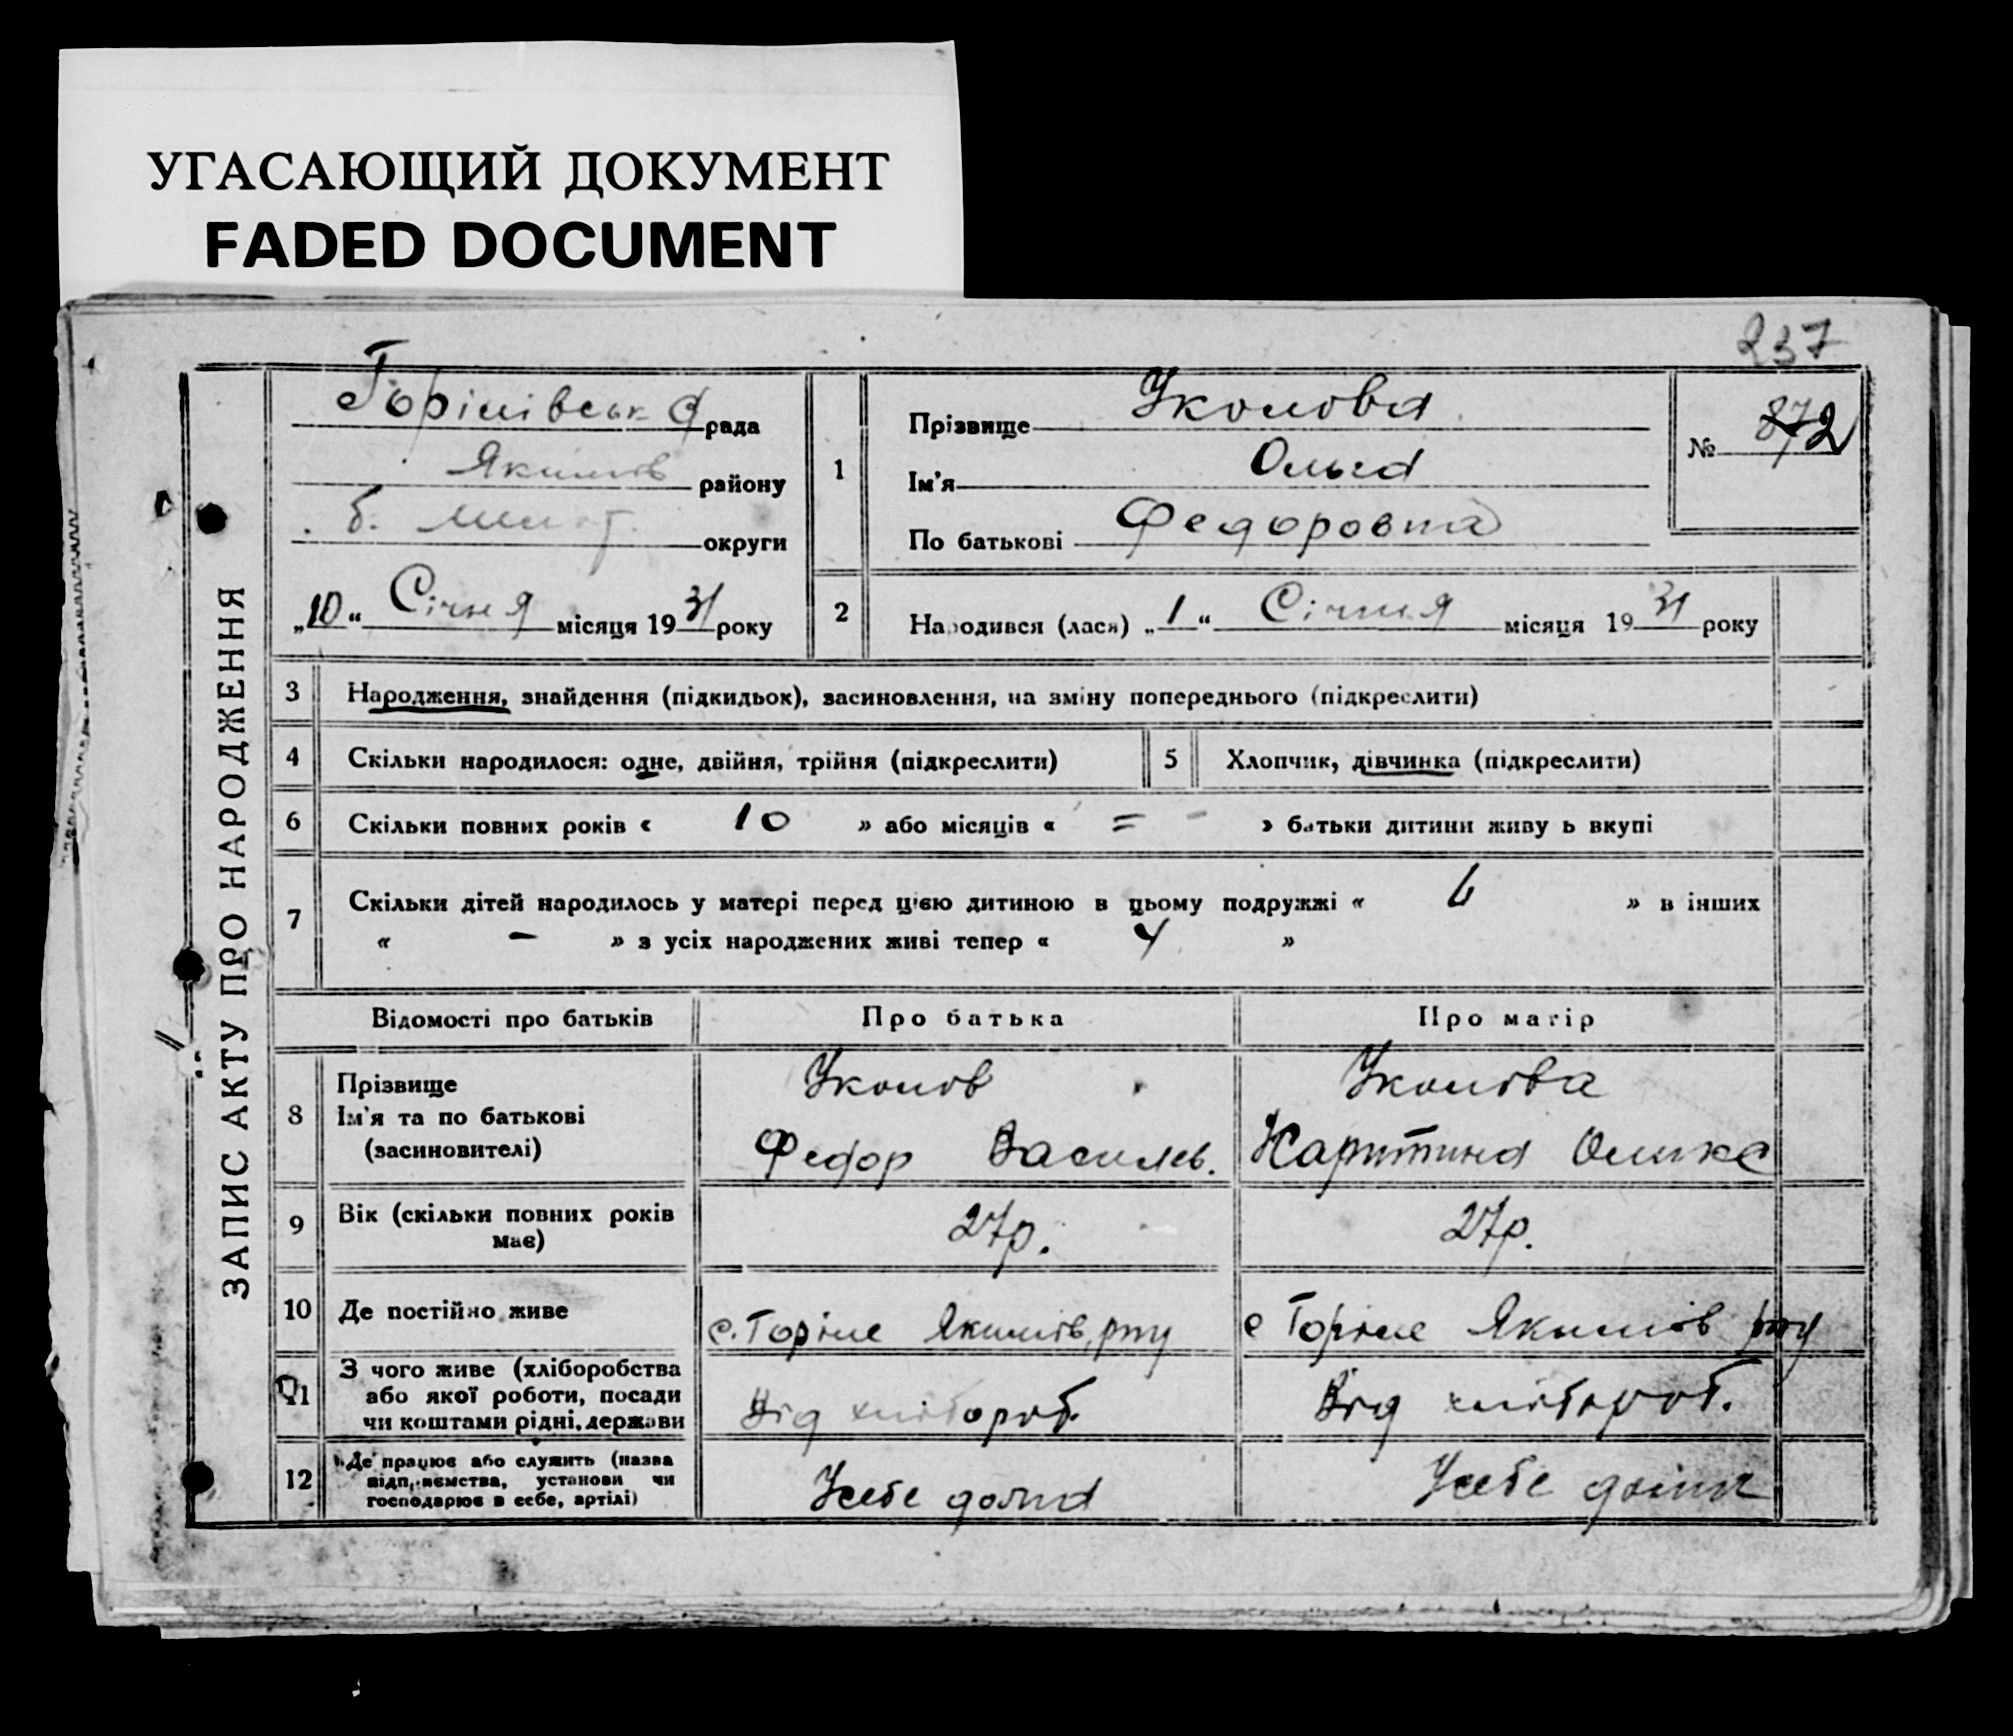 УГАСАЮЩИЙ ДОКУМЕНТ
FADED DOCUMENT
237
ЗАПИС АКТУ ПРО НАРОДЖЕННЯ
Горілівська рада
Якимів району
б. Меліт. округи
„10“ Січня місяця 1931 року
1
Прізвище Уколова
Ім'я Ольга
По батькові Федоровна
№ 872
2 Народився (лася) „1“ Січня місяця 1931 року
3 Народження, знайдення (підкидьок), засиновлення, на зміну попереднього (підкреслити)
4 Скільки народилося: одне, двійня, трійня (підкреслити) 5 Хлопчик, дівчинка (підкреслити)
6 Скільки повних років « 10 » або місяців « = » батьки дитини живуть вкупі
7 Скільки дітей народилось у матері перед цією дитиною в цьому подружжі « 6 » в інших
« - » з усіх народжених живі тепер « 4 »
Відомості про батьків Про батька Про матір
8 Прізвище
Ім'я та по батькові
(засиновителі)
Уколов
Федор Василев.
Уколова
Харитина
9 Вік (скільки повних років має)
27р. 27р.
10 Де постійно живе
с. Горіле Якимів, р-ну
с Горіле Якимів р-ну
11 З чого живе (хліборобства
або якої роботи, посади
чи коштами рідні, держави
Від хлібороб.
Від хлібороб.
12 Де працює або служить (назва
підприємства, установи чи
господарює в себе, артілі)
Усебе дома
Усебе дома